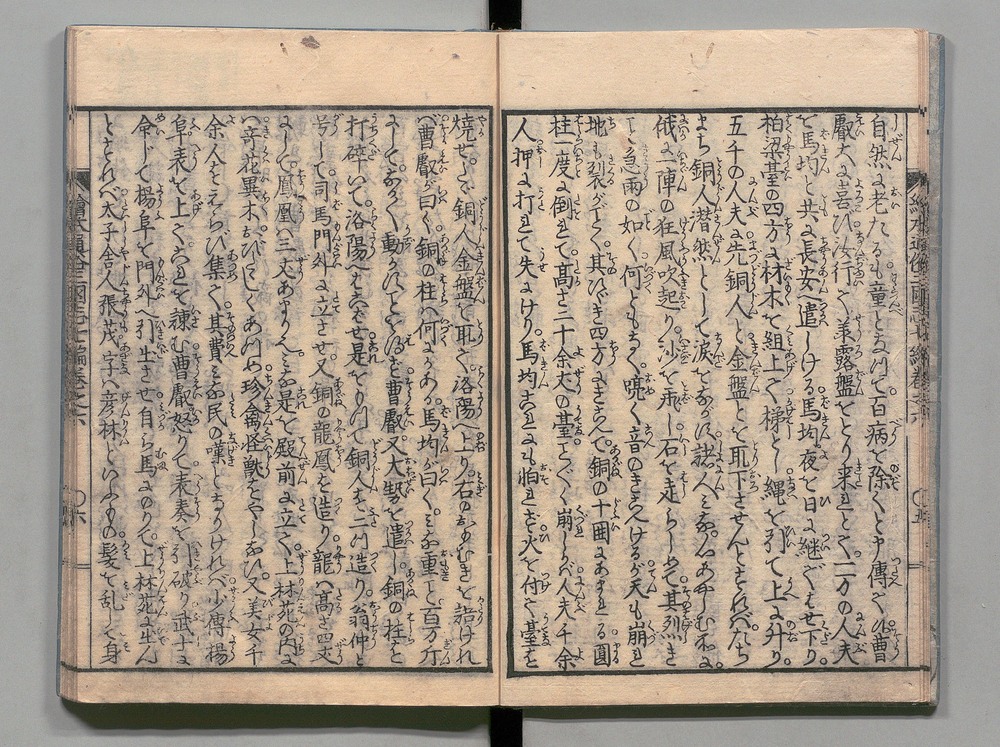 自然に老たるも童となつて百病を除くと申傳へ候曹
叡大に喜び汝行て承露盤をとり来れとて一万の人夫
を馬均と共に長安へ遣しける馬均夜を日に継ではせ下り
柏梁臺の四方に材木を組上て梯とし縄を引て上に升り
五千の人夫に先銅人と金盤とを取下させんとすればたち
まち銅人潜然として涙をながす諸人みなあやしむ所に
俄に一陣の狂風吹起り沙を飛し石を走らしめて其烈しき
こと急雨の如く何ともなく喨く音のきこへけるが天も崩れ
地も裂がごとく其ひゞき四方にきこへて銅の十囲にあまる圓
柱一度に倒れて髙さ二十余丈の臺ことごとく崩しが人夫千余
人押に打れて失にけり馬均これにも怕れず火を付て臺を
焼せて銅人金盤を取て洛陽へ上り右のおもむきを語けれ
ば曹叡が曰く銅の柱は何にかある馬均が曰くみな重こと百万斤
にしてたやすく動かしがたし曹叡又大勢を遣し銅の柱を
打碎いて洛陽へはこばせ是をもつて銅人を二ツ造り翁仲と
号して司馬門外に立させ又銅の龍鳳を造り龍は髙さ四丈
にして鳳凰は三丈あまりなりみな是を殿前に立て上林苑の内に
は奇花異木おびたゝしくあつめ珍禽怪獣をやしなひ又美女千
余人をえらび集て其費みな民の嘆となりければ少傅楊
阜表を上てこれを諫む曹叡怒りて表奏を引破り武士に
命じて楊阜を門外へ引出させ自ら馬にのりて上林苑に出ん
とすれば太子舎人張茂字は彦林といふもの髪を乱して身